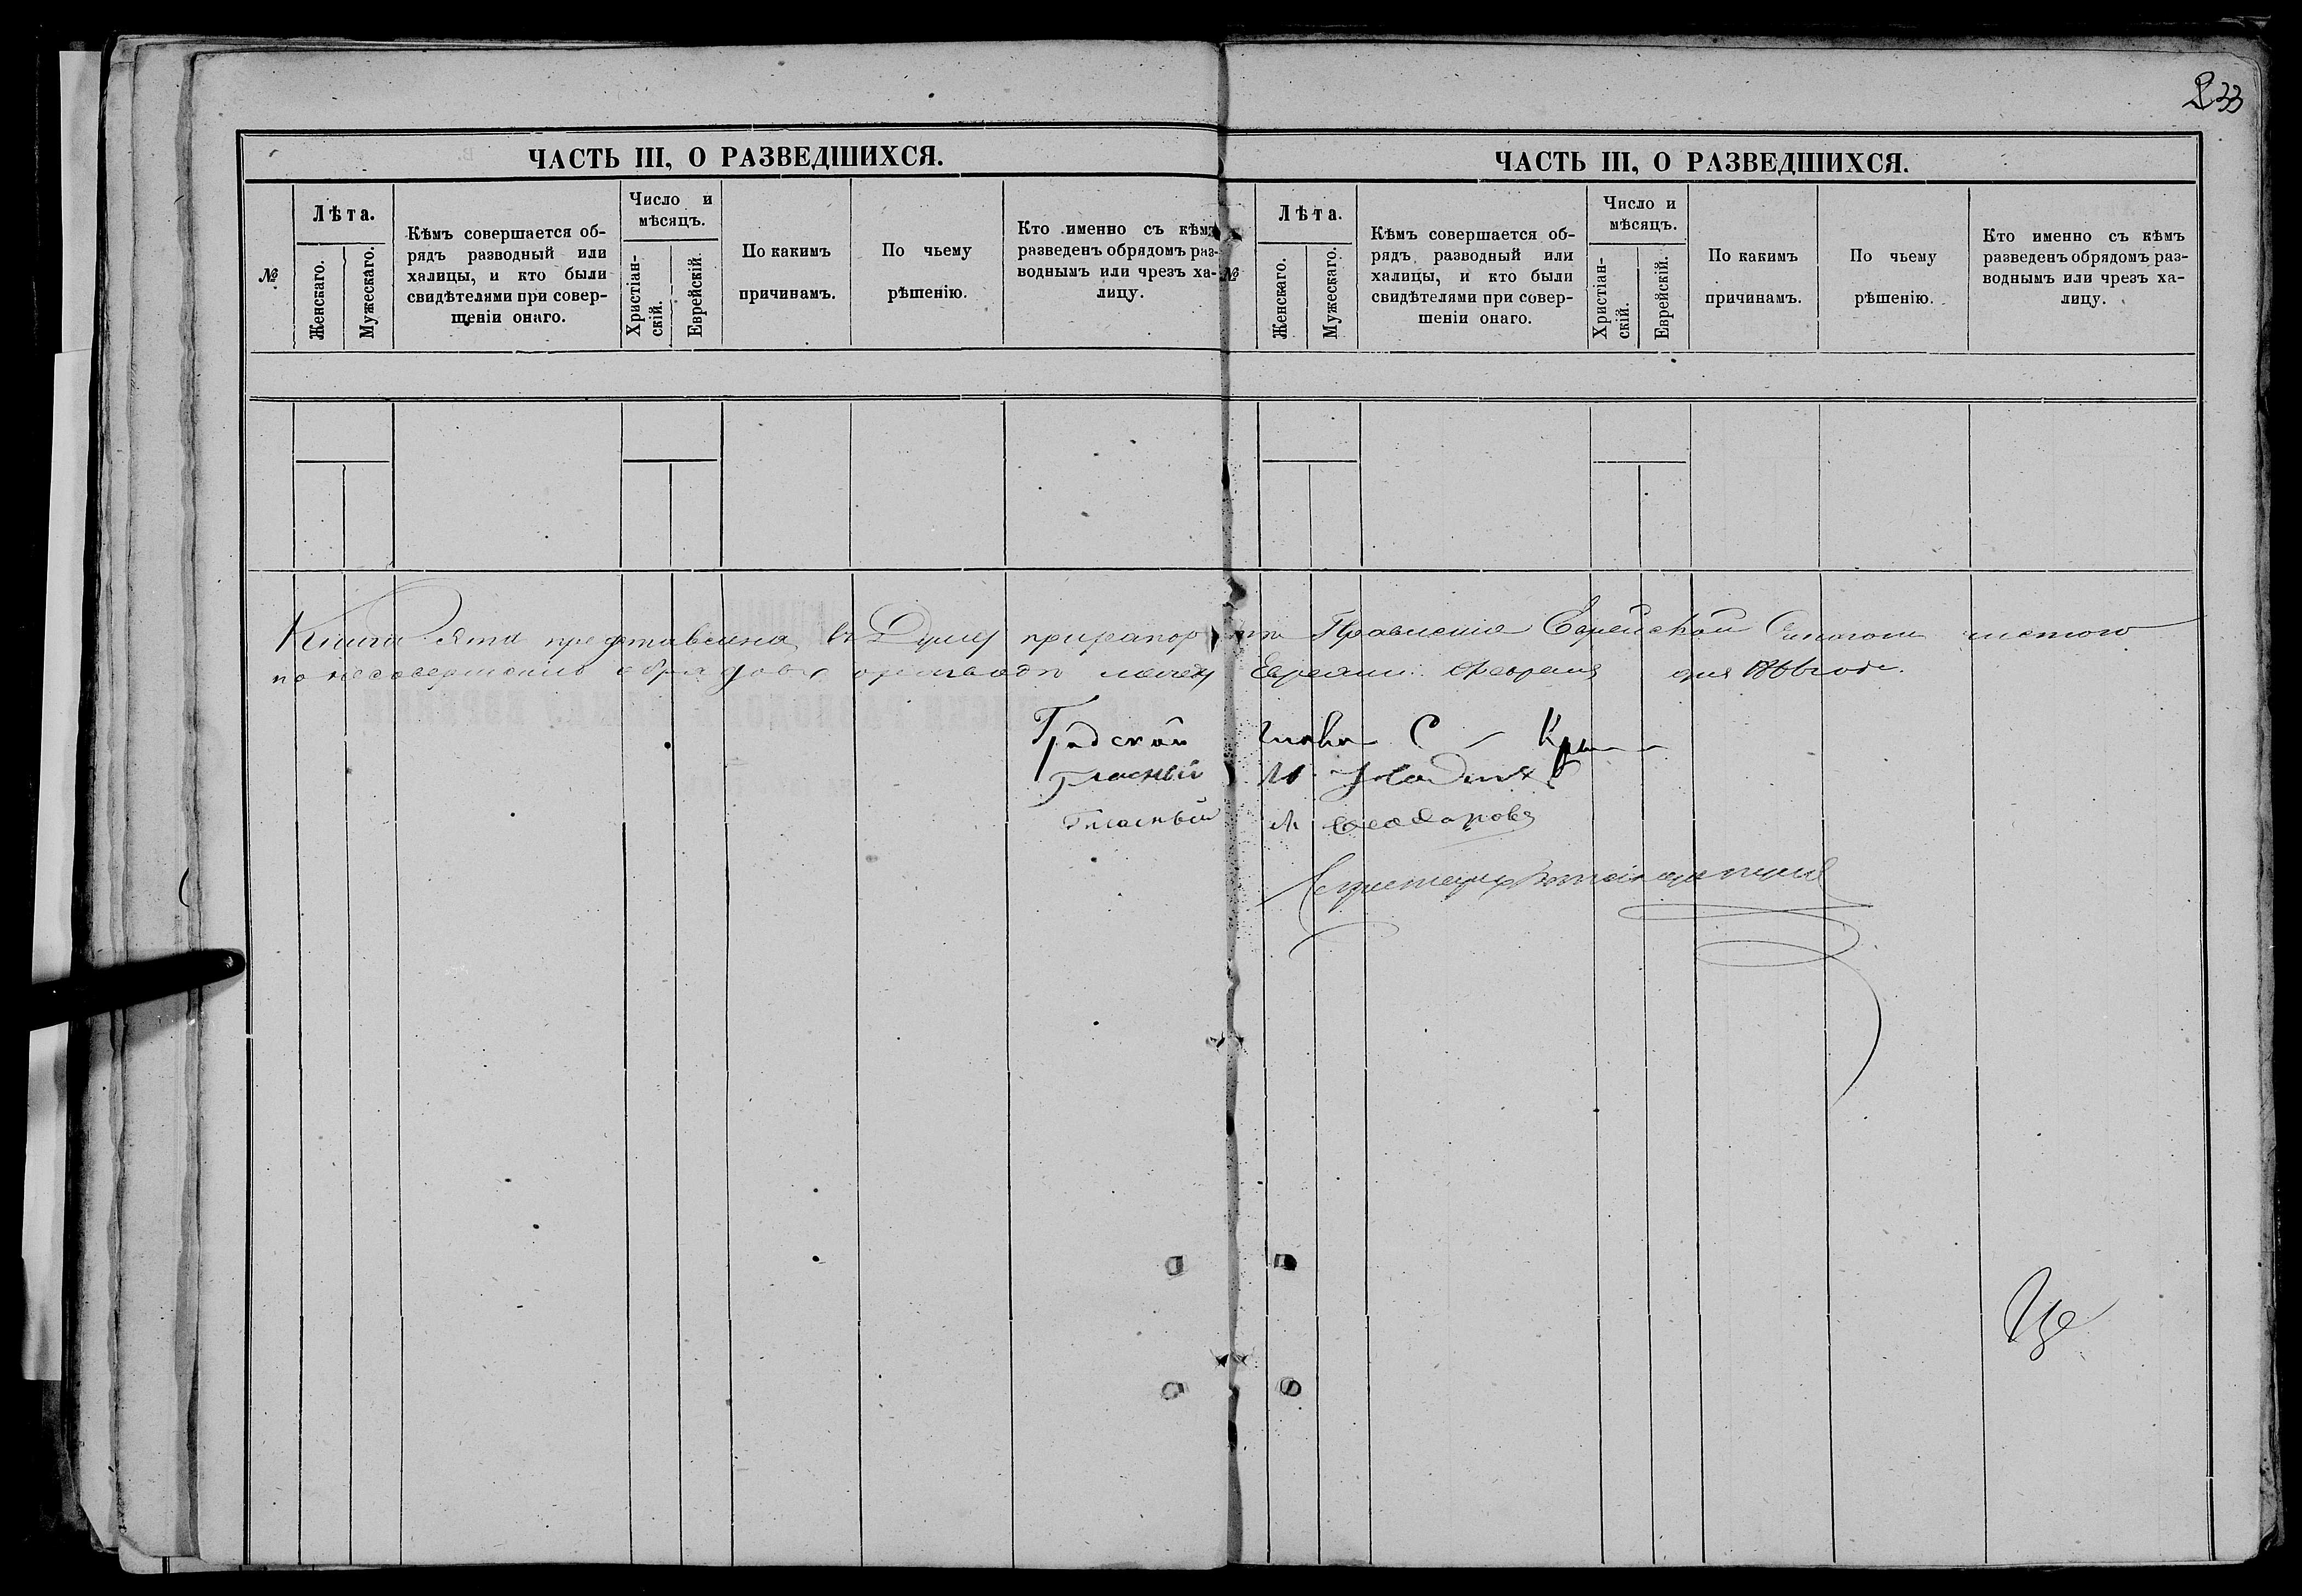 233
ЧАСТЬ III, О РАЗВЕДШИХСЯ.
№
Лѣта.
Женскаго.
Мужескаго.
Кѣмъ совершается об-
рядъ разводный или
халицы, и кто были
свидѣтелями при совер-
шеніи онаго.
Число и
мѣсяцъ.
Христіан-
скій.
Еврейскій.
По какимъ
причинамъ.
По чьему
рѣшенію.
Кто именно съ кѣмъ
разведенъ обрядомъ раз-
воднымъ или чрезъ ха-
лицу.
ЧАСТЬ III, О РАЗВЕДШИХСЯ.
№
Лѣта.
Женскаго.
Мужескаго.
Кѣмъ совершается об-
рядъ разводный или
халицы, и кто были
свидѣтелями при совер-
шеніи онаго.
Число и
мѣсяцъ.
Христіан-
скій.
Еврейскій.
По какимъ
причинамъ.
По чьему
рѣшенію.
Кто именно съ кѣмъ
разведенъ обрядомъ раз-
воднымъ или чрезъ ха-
лицу.
Книга эта представлена въ Думу при рапортѣ Правленія Еврейской Синагоги
по несовершенію обрядовъ о разводѣ между Евреями Февраля дня
Градской глава С
Гласный
Гласный